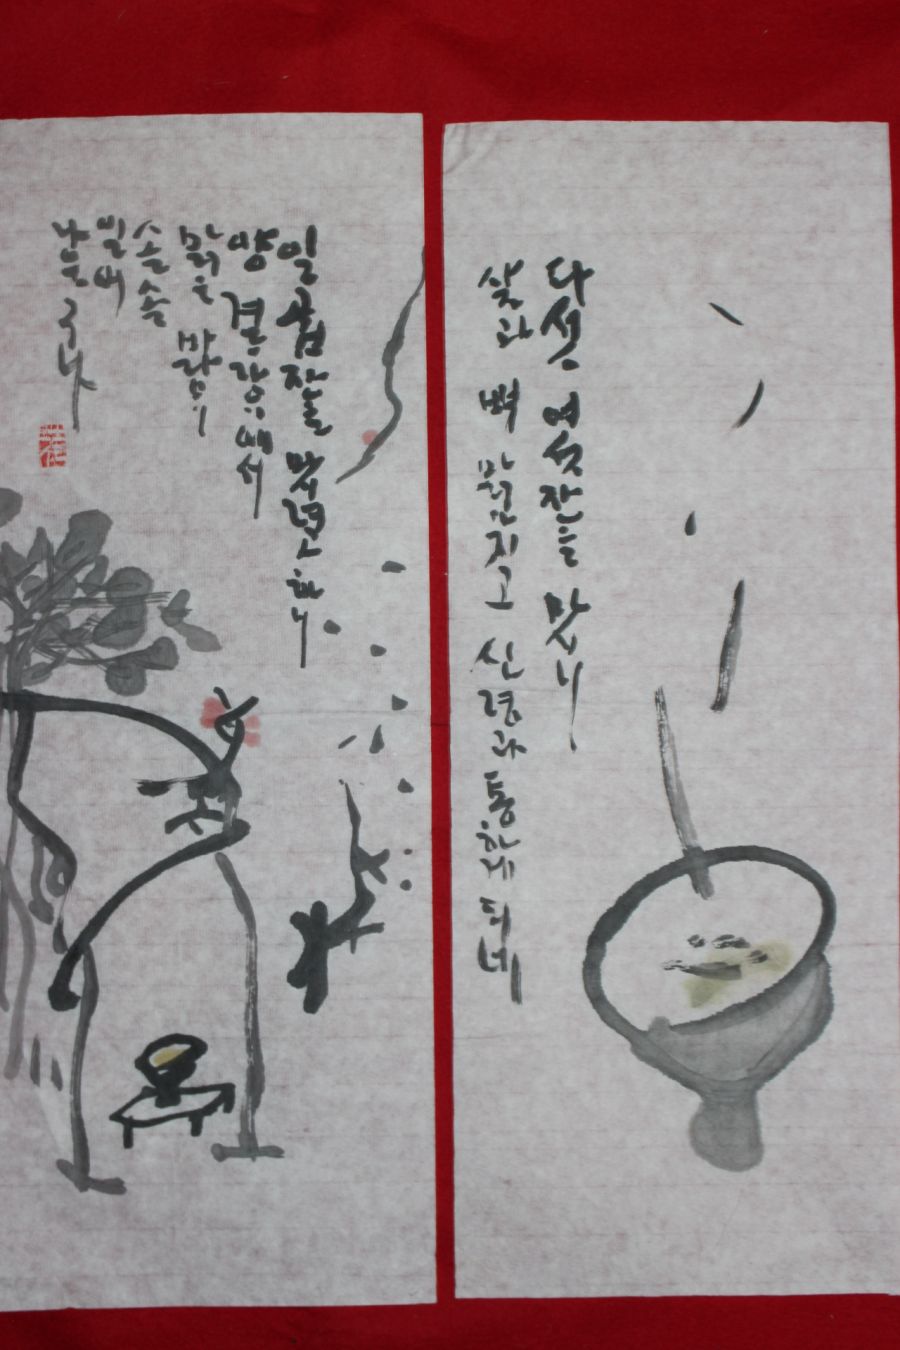 다섯, 여섯잔을 맛보니
살과 뼈 맑아지고 신령과 통하게 되네
일곱잔을 맛보려 하니
양 겨드랑이에서
맑은 바람이
솔솔
일어
나는구나